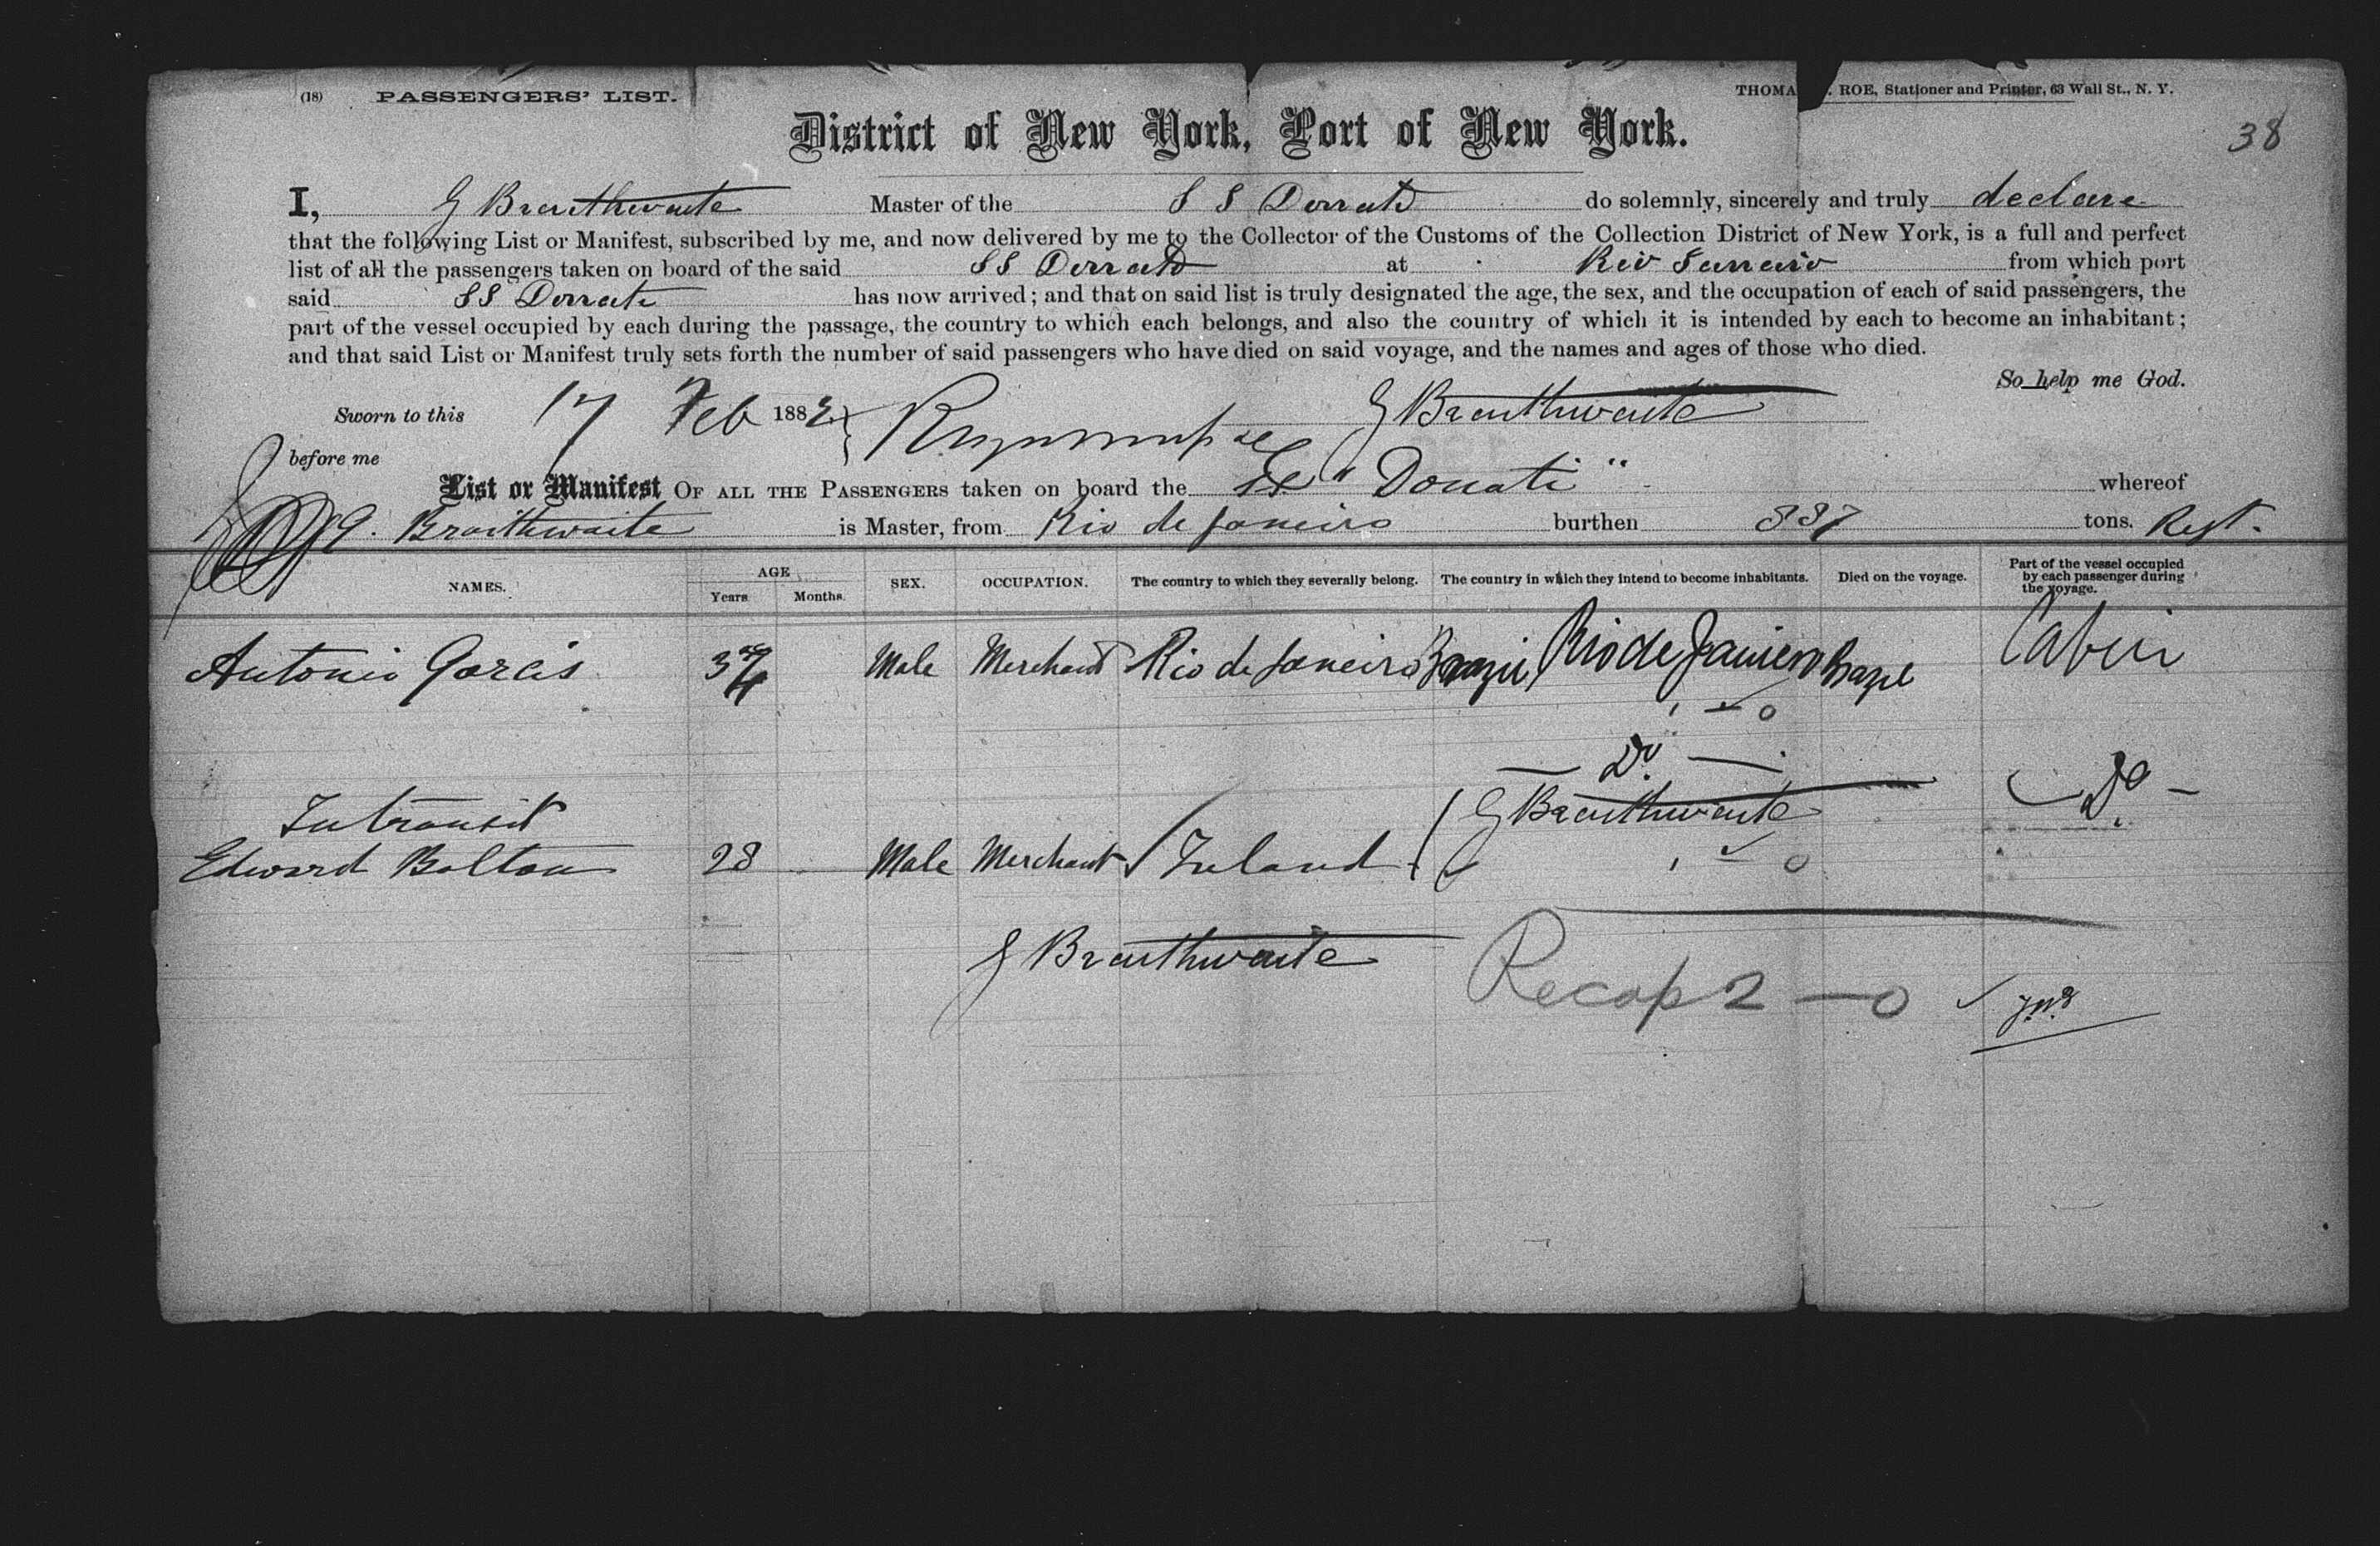 (18) PASSENGERS' LIST. THOMA . ROE, Stationer and Printer, 63 Wall St., N. Y.
District of New York, Port of New York.
38
I, G Braithwaite Master of the S S Donati do solemnly, sincerely and truly declare
that the following List or Manifest, subscribed by me, and now delivered by me to the Collector of the Customs of the Collection District of New York, is a full and perfect
list of all the passengers taken on board of the said SS Donati at Rio Janeiro from which port
said SS Donati has now arrived; and that on said list is truly designated the age, the sex, and the occupation of each of said passengers, the
part of the vessel occupied by each during the passage, the country to which each belongs, and also the country of which it is intended by each to become an inhabitant;
and that said List or Manifest truly sets forth the number of said passengers who have died on said voyage, and the names and ages of those who died.
So help me God.
Sworn to this 17 Feb 1882 G Braithwaite
before me
List or Manifest OF ALL THE PASSENGERS taken on board the SS "Donati" whereof
G. Braithwaite is Master, from Rio de Janeiro burthen 887 tons. Regt.
NAMES. AGE Years Months. SEX. OCCUPATION. The country to which they severally belong. The country in which they intend to become inhabitants. Died on the voyage. Part of the vessel occupied by each passenger during the voyage.
Antonio Garcis Male Merchant Rio de Janeiro Brazil Rio de Janiero Brazil Cabin
1 - 0
- Do - - Do -
In transit G Braithwaite
Edward Bolton 28 Male Merchant Ireland 1 - 0
G Braithwaite
Recap 2 - 0